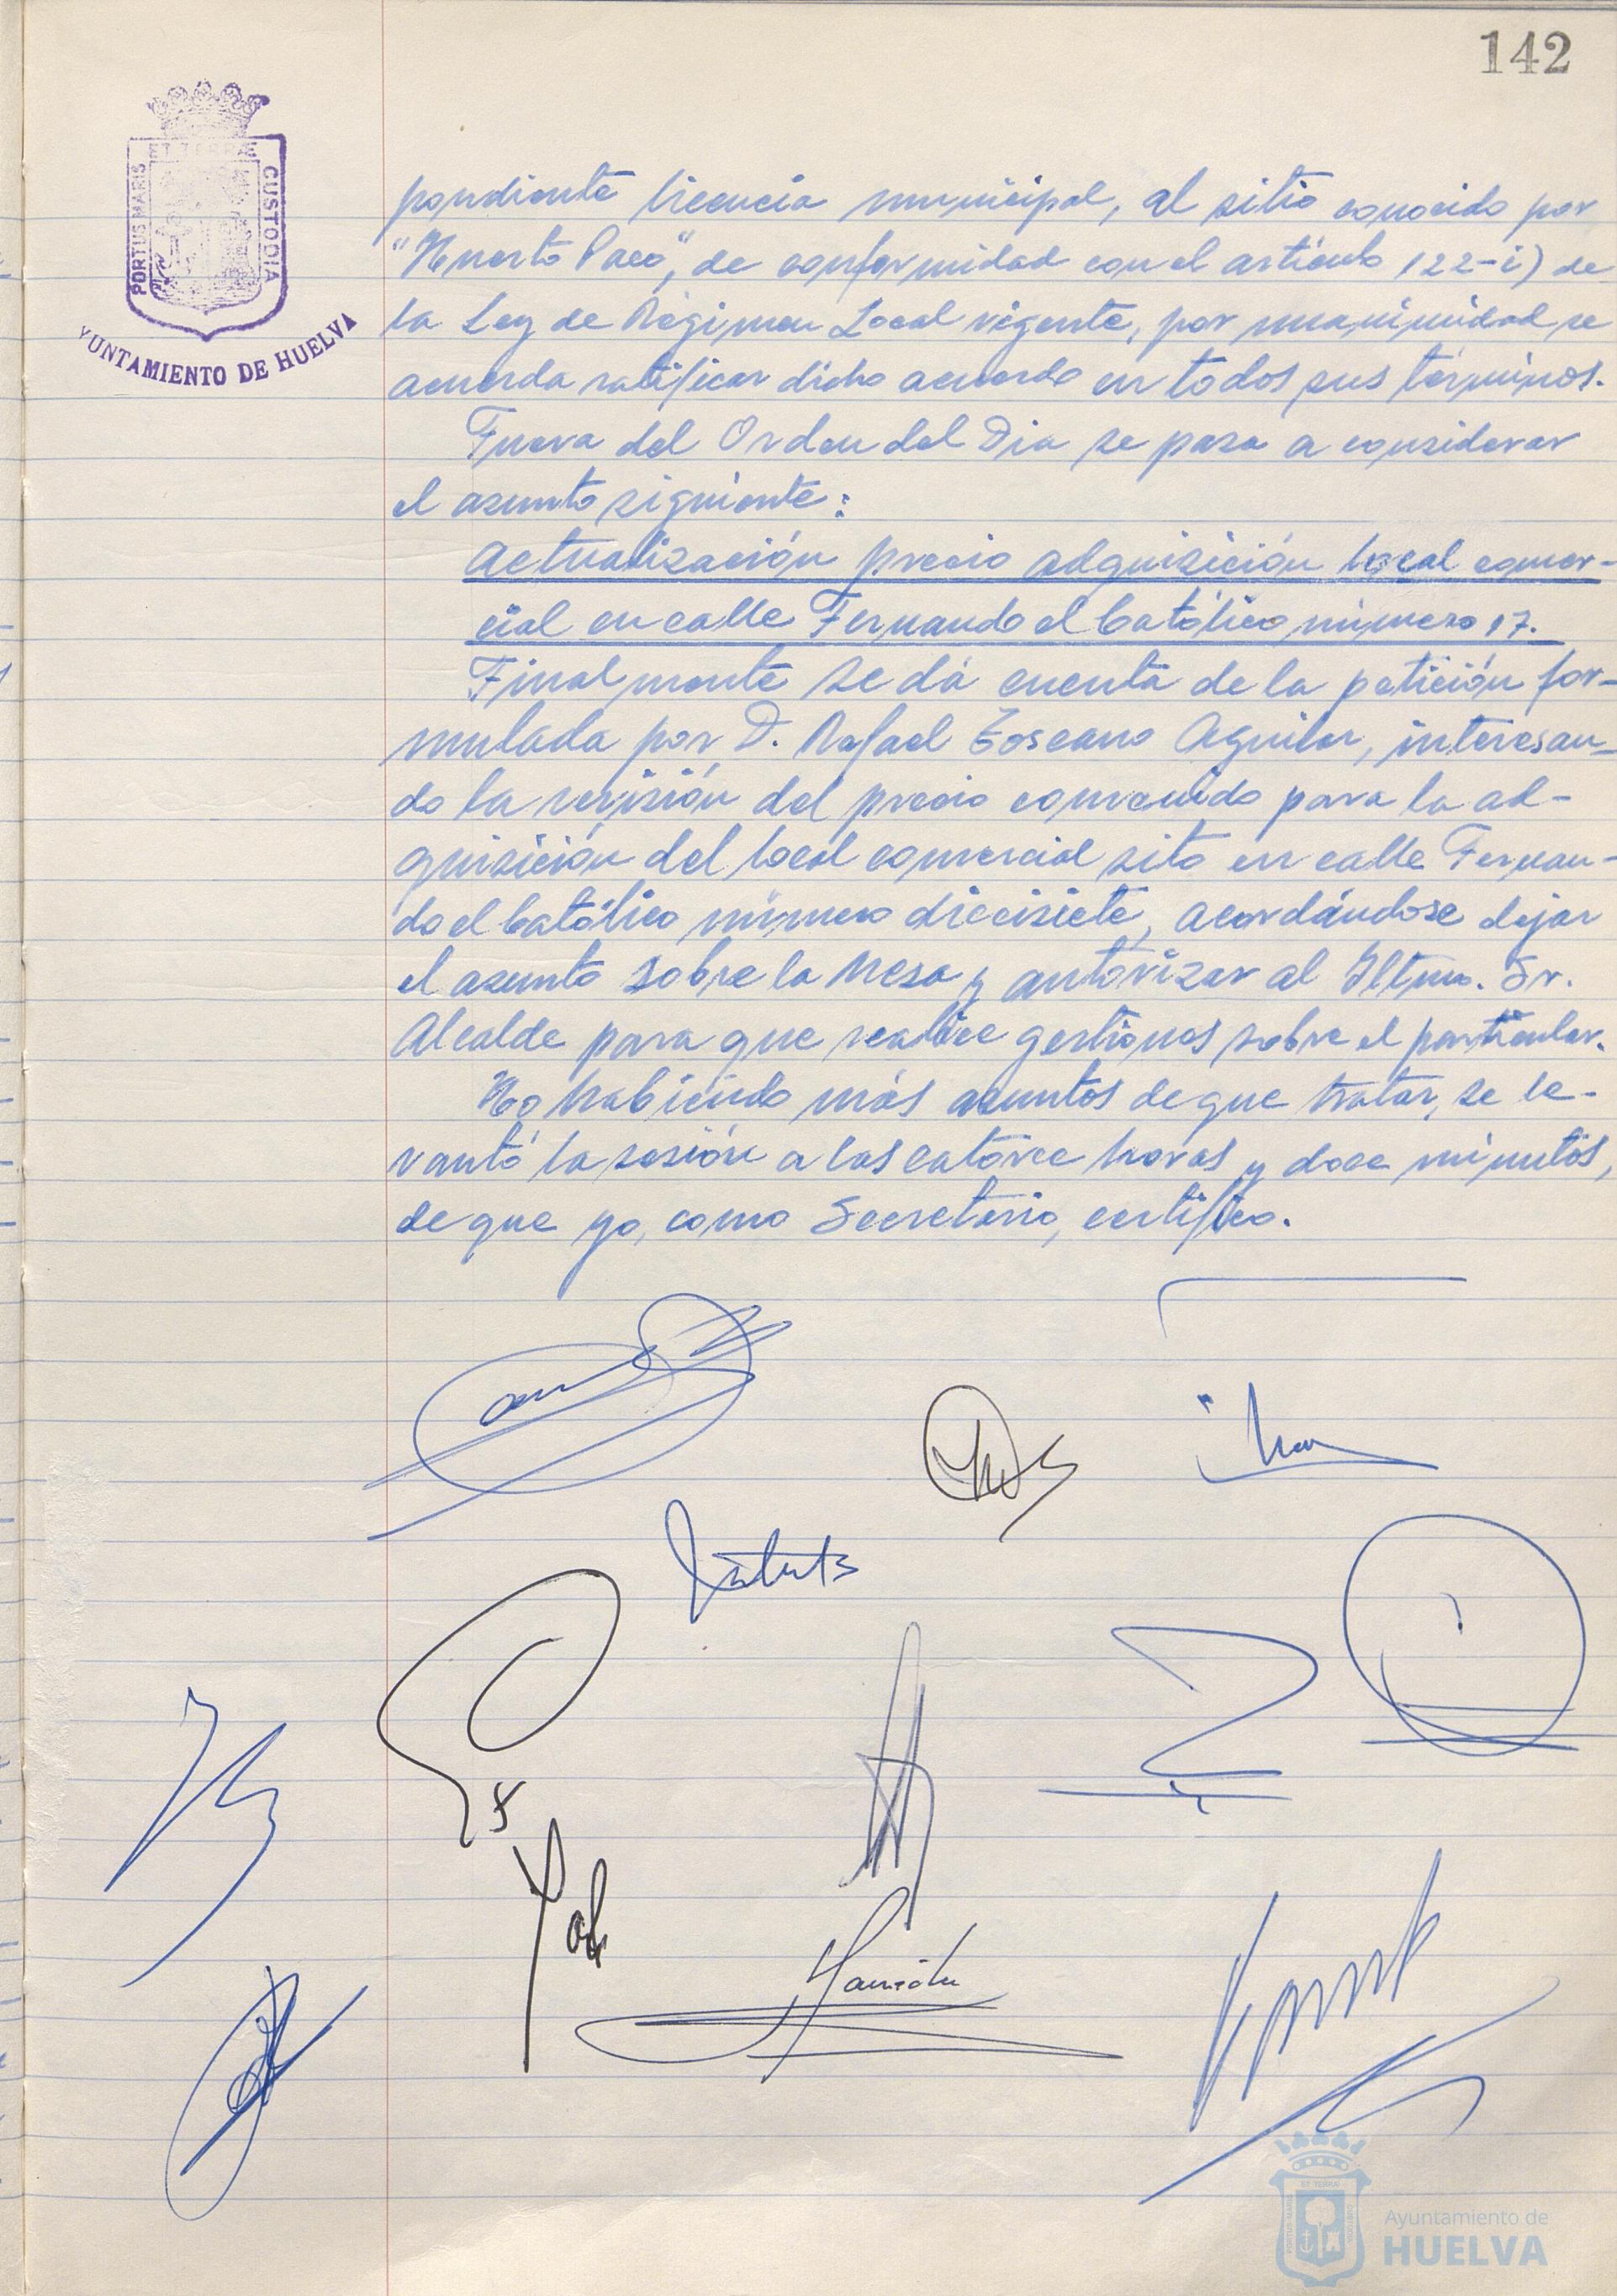 142
ET TERRÆ
PORTUS MARIS
CUSTODIA
AYUNTAMIENTO DE HUELVA
pondiente licencia municipal, al sitio conocido por
"Huerto Paco", de conformidad con el artículo 122-i) de
la Ley de Régimen Local vigente, por unanimidad se
acuerda ratificar dicho acuerdo en todos sus términos.
Fuera del Orden del Dia se pasa a considerar
el asunto siguiente:
Actualización precio adquisición local comer-
cial en calle Fernando el Católico número 17.
Finalmente se dá cuenta de la petición for-
mulada por D. Rafael Toscano Aguilar, interesan-
do la revisión del precio convenido para la ad-
quisición del local comercial sito en calle Fernan-
do el Católico número diecisiete, acordándose dejar
el asunto sobre la Mesa y autorizar al Iltmo. Sr.
Alcalde para que realice gestiones sobre el particular.
No habiendo más asuntos de que tratar, se le-
vantó la sesión a las catorce horas y doce minutos,
de que yo, como Secretario, certifico.
Ayuntamiento de
HUELVA